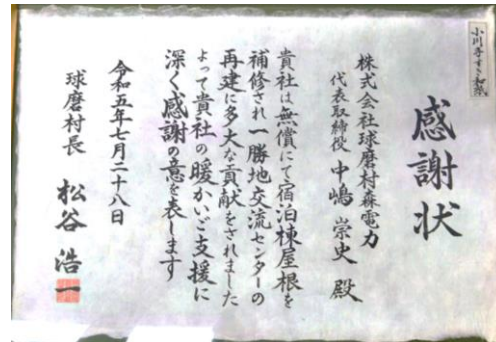 小川手すき和紙
感謝状
株式会社球磨村森電力
代表取締役 中嶋崇史 殿
貴社は無償にて宿泊棟屋根を
補修され一勝地交流センターの
再建に多大な貢献をされました
よって貴社の暖かいご支援に
深く感謝の意を表します
令和五年七月二十八日
球磨村長 松谷浩一